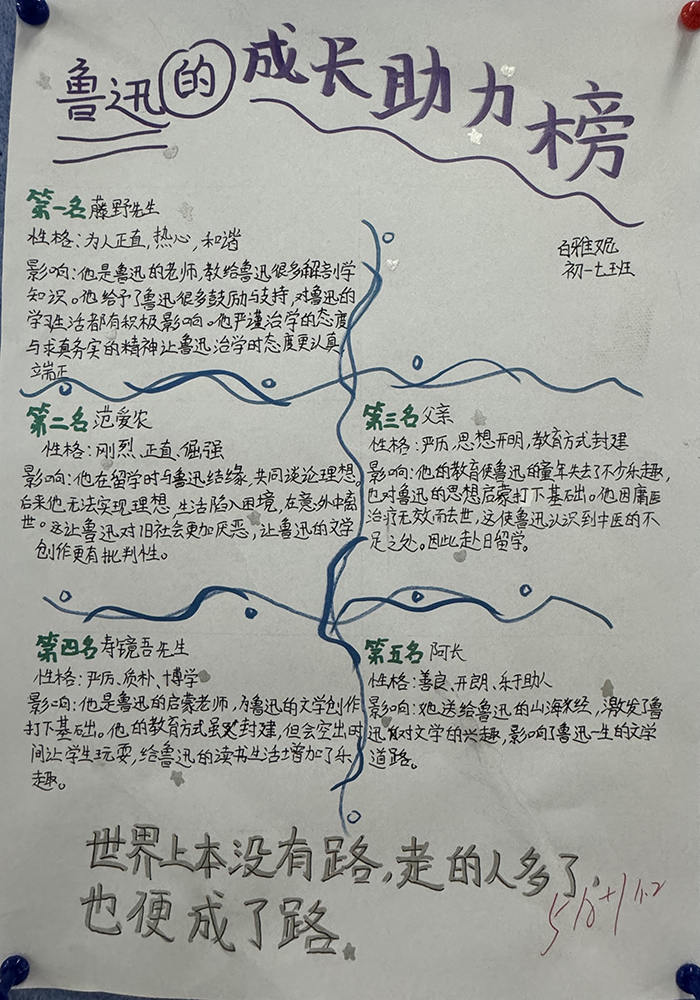 鲁迅的成长助力榜
白雅妮
初一七班
第一名藤野先生
性格:为人正直,热心,和谐
影响:他是鲁迅的老师,教给鲁迅很多解剖学
知识。他给予了鲁迅很多鼓励与支持,对鲁迅的
学习生活都有积极影响。他严谨治学的态度
与求真务实的精神让鲁迅治学时态度更认真
端正
第二名 范爱农
性格:刚烈、正直、倔强
影响:他在留学时与鲁迅结缘,共同谈论理想。
后来他无法实现理想,生活陷入困境,在意外中离
世。这让鲁迅对旧社会更加厌恶,让鲁迅的文学
创作更有批判性。
第三名 父亲
性格:严厉,思想开明,教育方式封建
影响:他的教育使鲁迅的童年失去了不少乐趣,
也对鲁迅的思想启蒙打下基础。他因庸医
治疗无效而去世,这使鲁迅认识到中医的不
足之处。因此赴日留学。
第四名 寿镜吾先生
性格:严厉、质朴、博学
影响:他是鲁迅的启蒙老师,为鲁迅的文学创作
打下基础。他的教育方式虽封建,但会空出时
间让学生玩耍,给鲁迅的读书生活增加了乐
趣。
第五名 阿长
性格:善良、开朗、乐于助人
影响:她送给鲁迅的山海经,激发了鲁
迅对文学的兴趣,影响了鲁迅一生的文学
道路。
世界上本没有路,走的人多了,
也便成了路。